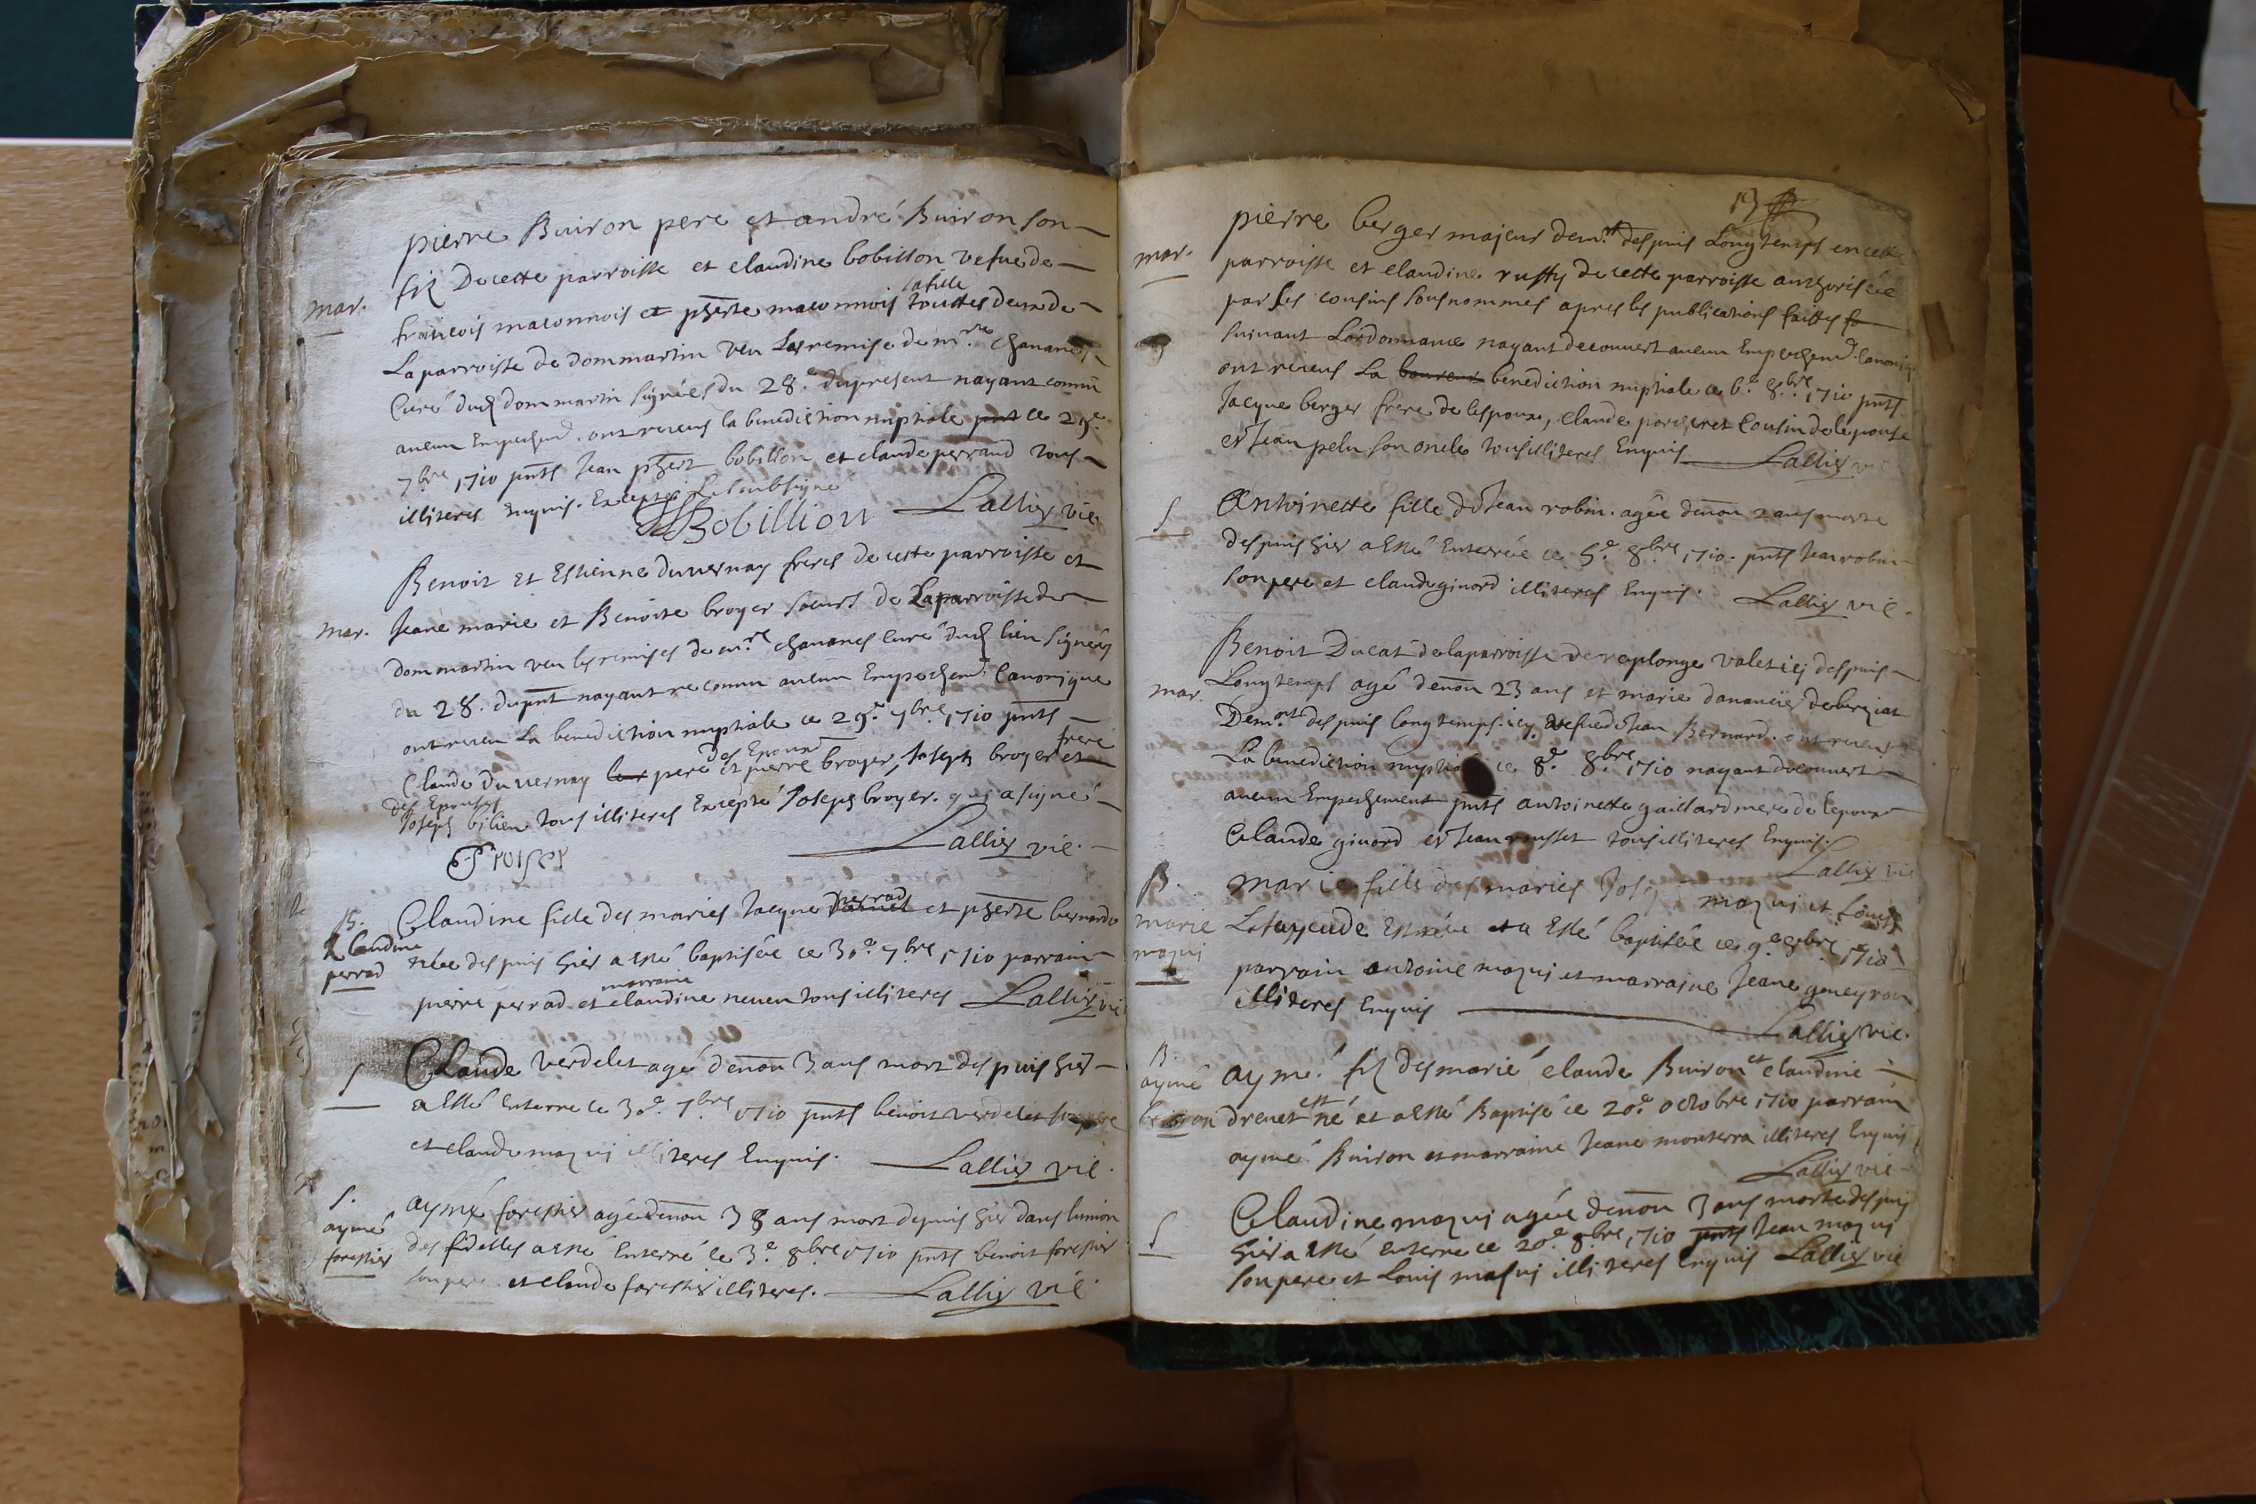 pierre Buiron pere et andré Buiron son
mar.
filz De cette parroisse et claudine bobillon vefue de
la fille
francois maconnois et pherte maconnois touttes deux de
La parroisse de dommartin veu Les remise de mre chananes
Curé dud dommartin signées du 28e. du present nayant connu
aucun Empechemt. ont receus la benediction nuptiale ce 29e.
7bre 1710 pnts Jean phert bobillon et claude perrand tous
illiteres Enquis. Excepté Le soubsigné
Bobillion Lallier vic.
Benoit et Estienne duvernay freres de cette parroisse et
mar. Jeane marie et Benoite broyer soeurs de La parroisse de
dommartin veu les remises de mre. chananes curé dud lieu signées
du 28. du pnt nayant reconnu aucun Empechemt. Canonique
ont receu La benediction nuptiale ce 29e. 7bre. 1710 pnts
des Epoux frere
Claude duvernay pere et pierre broyer, Joseph broyer et
des Epouses
Joseph bilien tous illiteres Excepté Joseph broyer. qui a signé
Lallier vic.
B. Claudine fille des mariés Jacque perrad et pherte bernard
Claudine
perrad
née despuis hier a esté baptisée ce 30e. 7bre 1710 parrain
marraine
pierre perrad et claudine neveu tous illiteres Lallier vic
S Claude verdelet agé denon 3 ans mort despuis hier
a esté enterre le 30e. 7bre 1710 pnts benoit verdelet son pere
et claude mazui illiteres Enquis. Lallier vic.
S.
aymé
forestier
aymé forestier agé denon 38 ans mort depuis hier dans lunion
des fidelles a esté Enterré le 3e. 8bre 1710 pnts benoit forestier
son pere et claude forestier illiteres. Lallier vic.
19
mar. pierre berger majeur demt. despuis Longtemps en cette
parroisse et claudine ruffy de cette parroisse authorisée
par ses cousins sousnommes apres les publications faittes
suivant Lordonnance nayant decouvert aucun Empechemt. Canoniq
ont receus La benediction nuptiale ce 6e. 8bre. 1710 pnts
Jacque berger frere de lespoux, claude porcheret Cousin de lepouse
et Jean pelu son oncle tous illiteres Enquis Lallier vic
S Antoinette fille de Jean robin. agée denon 2 ans morte
despuis hier a esté Enterrée ce 5e. 8bre 1710. pnts Jean robin
son pere et claude givord illiteres Enquis. Lallier vic.
mar. Benoit Ducat de la parroisse de replonge valet icy despuis
Longtemps agé denon 23 ans et marie danancier de bereziat
Demnt despuis longtemps icy. vefve de Jean Bernard. ont receus
La benediction ce 8e. 8bre. 1710 nayant decouvert
aucun Empechement pnts antoinette gaillard mere de lepoux
Claude givord et Jean rousset tous illiteres Enquis.
Lallier vic
B.
marie
mazui
marie fille des mariés mazui et
Lataysude Est née et a Esté baptisée ce 9e 8bre 1710
parrain antoine mazui et marraine Jeane geneyron
illiteres Enquis Lallier vic.
B.
aymé
buiron
aymé. filz des marié claude Buiron et claudine
drevet est né et a esté Baptisé ce 20e. octobre 1710 parrain
aymé Buiron et marraine Jeane monterra illiteres Enquis
Lallier vic.
S Claudine mazui agée denon 3 ans morte despuis
hier a esté enterre ce 20e. 8bre 1710 pnts Jean mazui
son pere et Louis mazui illiteres Enquis Lallier vic